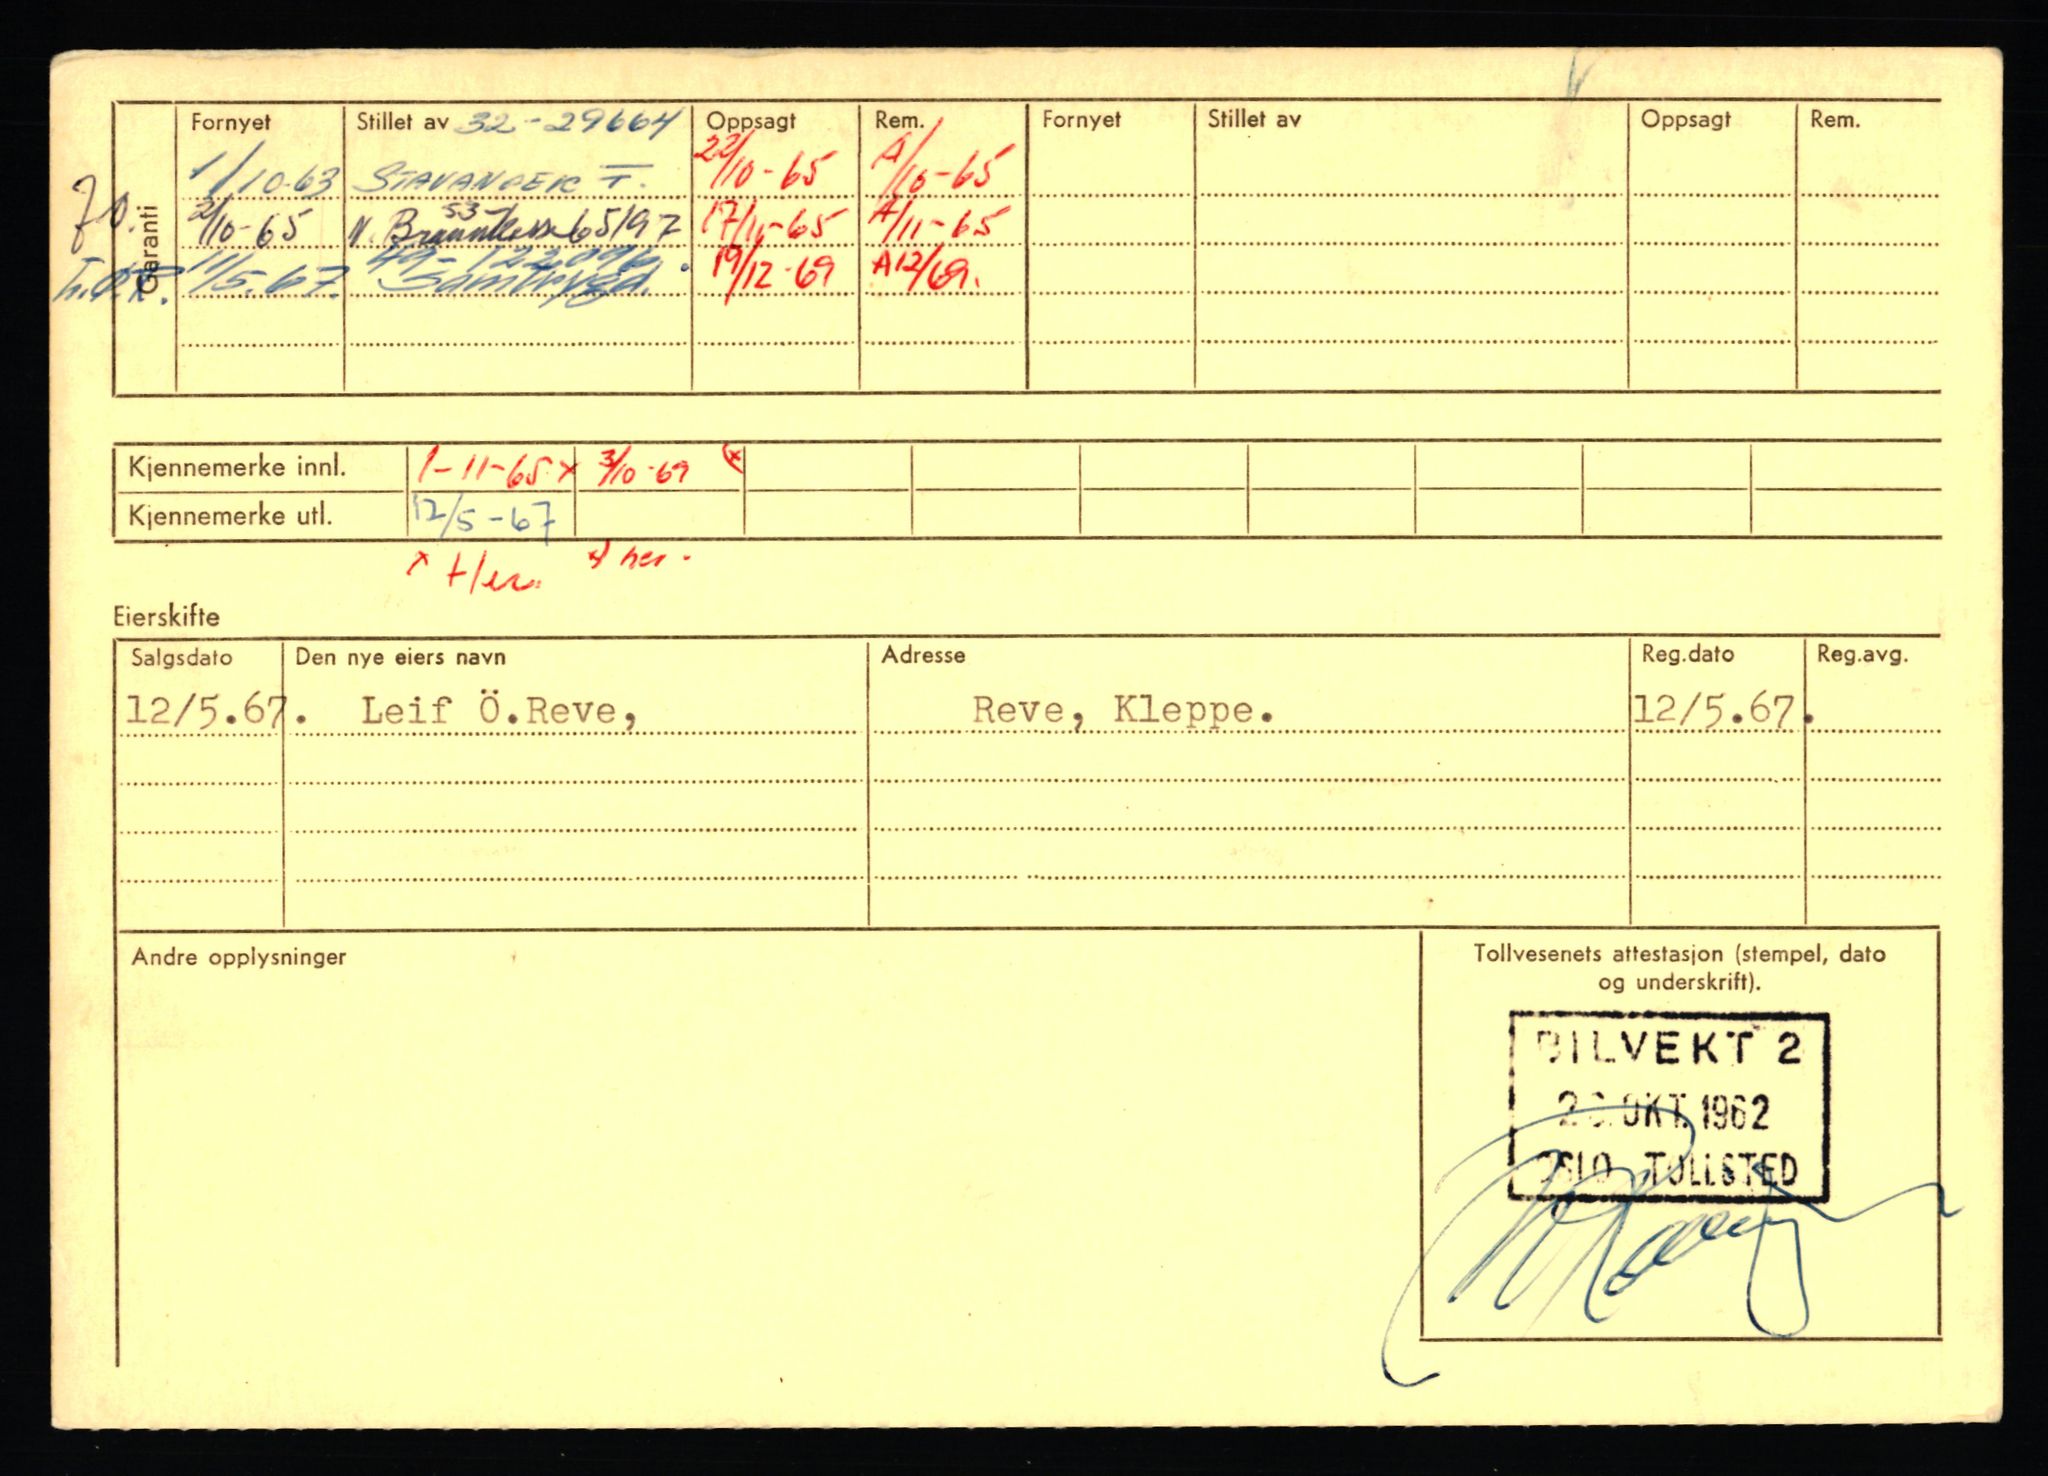 Fornyet Stillet av 32-29664 Oppsagt Rem. Fornyet Stillet av Oppsagt Rem.
Garanti
1/10-63 STAVANGER T. 22/10-65 A/10-65
2/10-65 N. 53- 65197 17/11-65 A/11-65
11/5.67. Samtrygd. 19/12-69 A12/69.
Kjennemerke innl. 1-11-65 x 3/10-69
Kjennemerke utl. 12/5-67
Eierskifte
Salgsdato Den nye eiers navn Adresse Reg.dato Reg.avg.
12/5.67. Leif Ö.Reve, Reve, Kleppe. 12/5.67.
Andre opplysninger
Tollvesenets attestasjon (stempel, dato
og underskrift).
BILVEKT 2
OKT. 1962
OSLO TOLLSTED